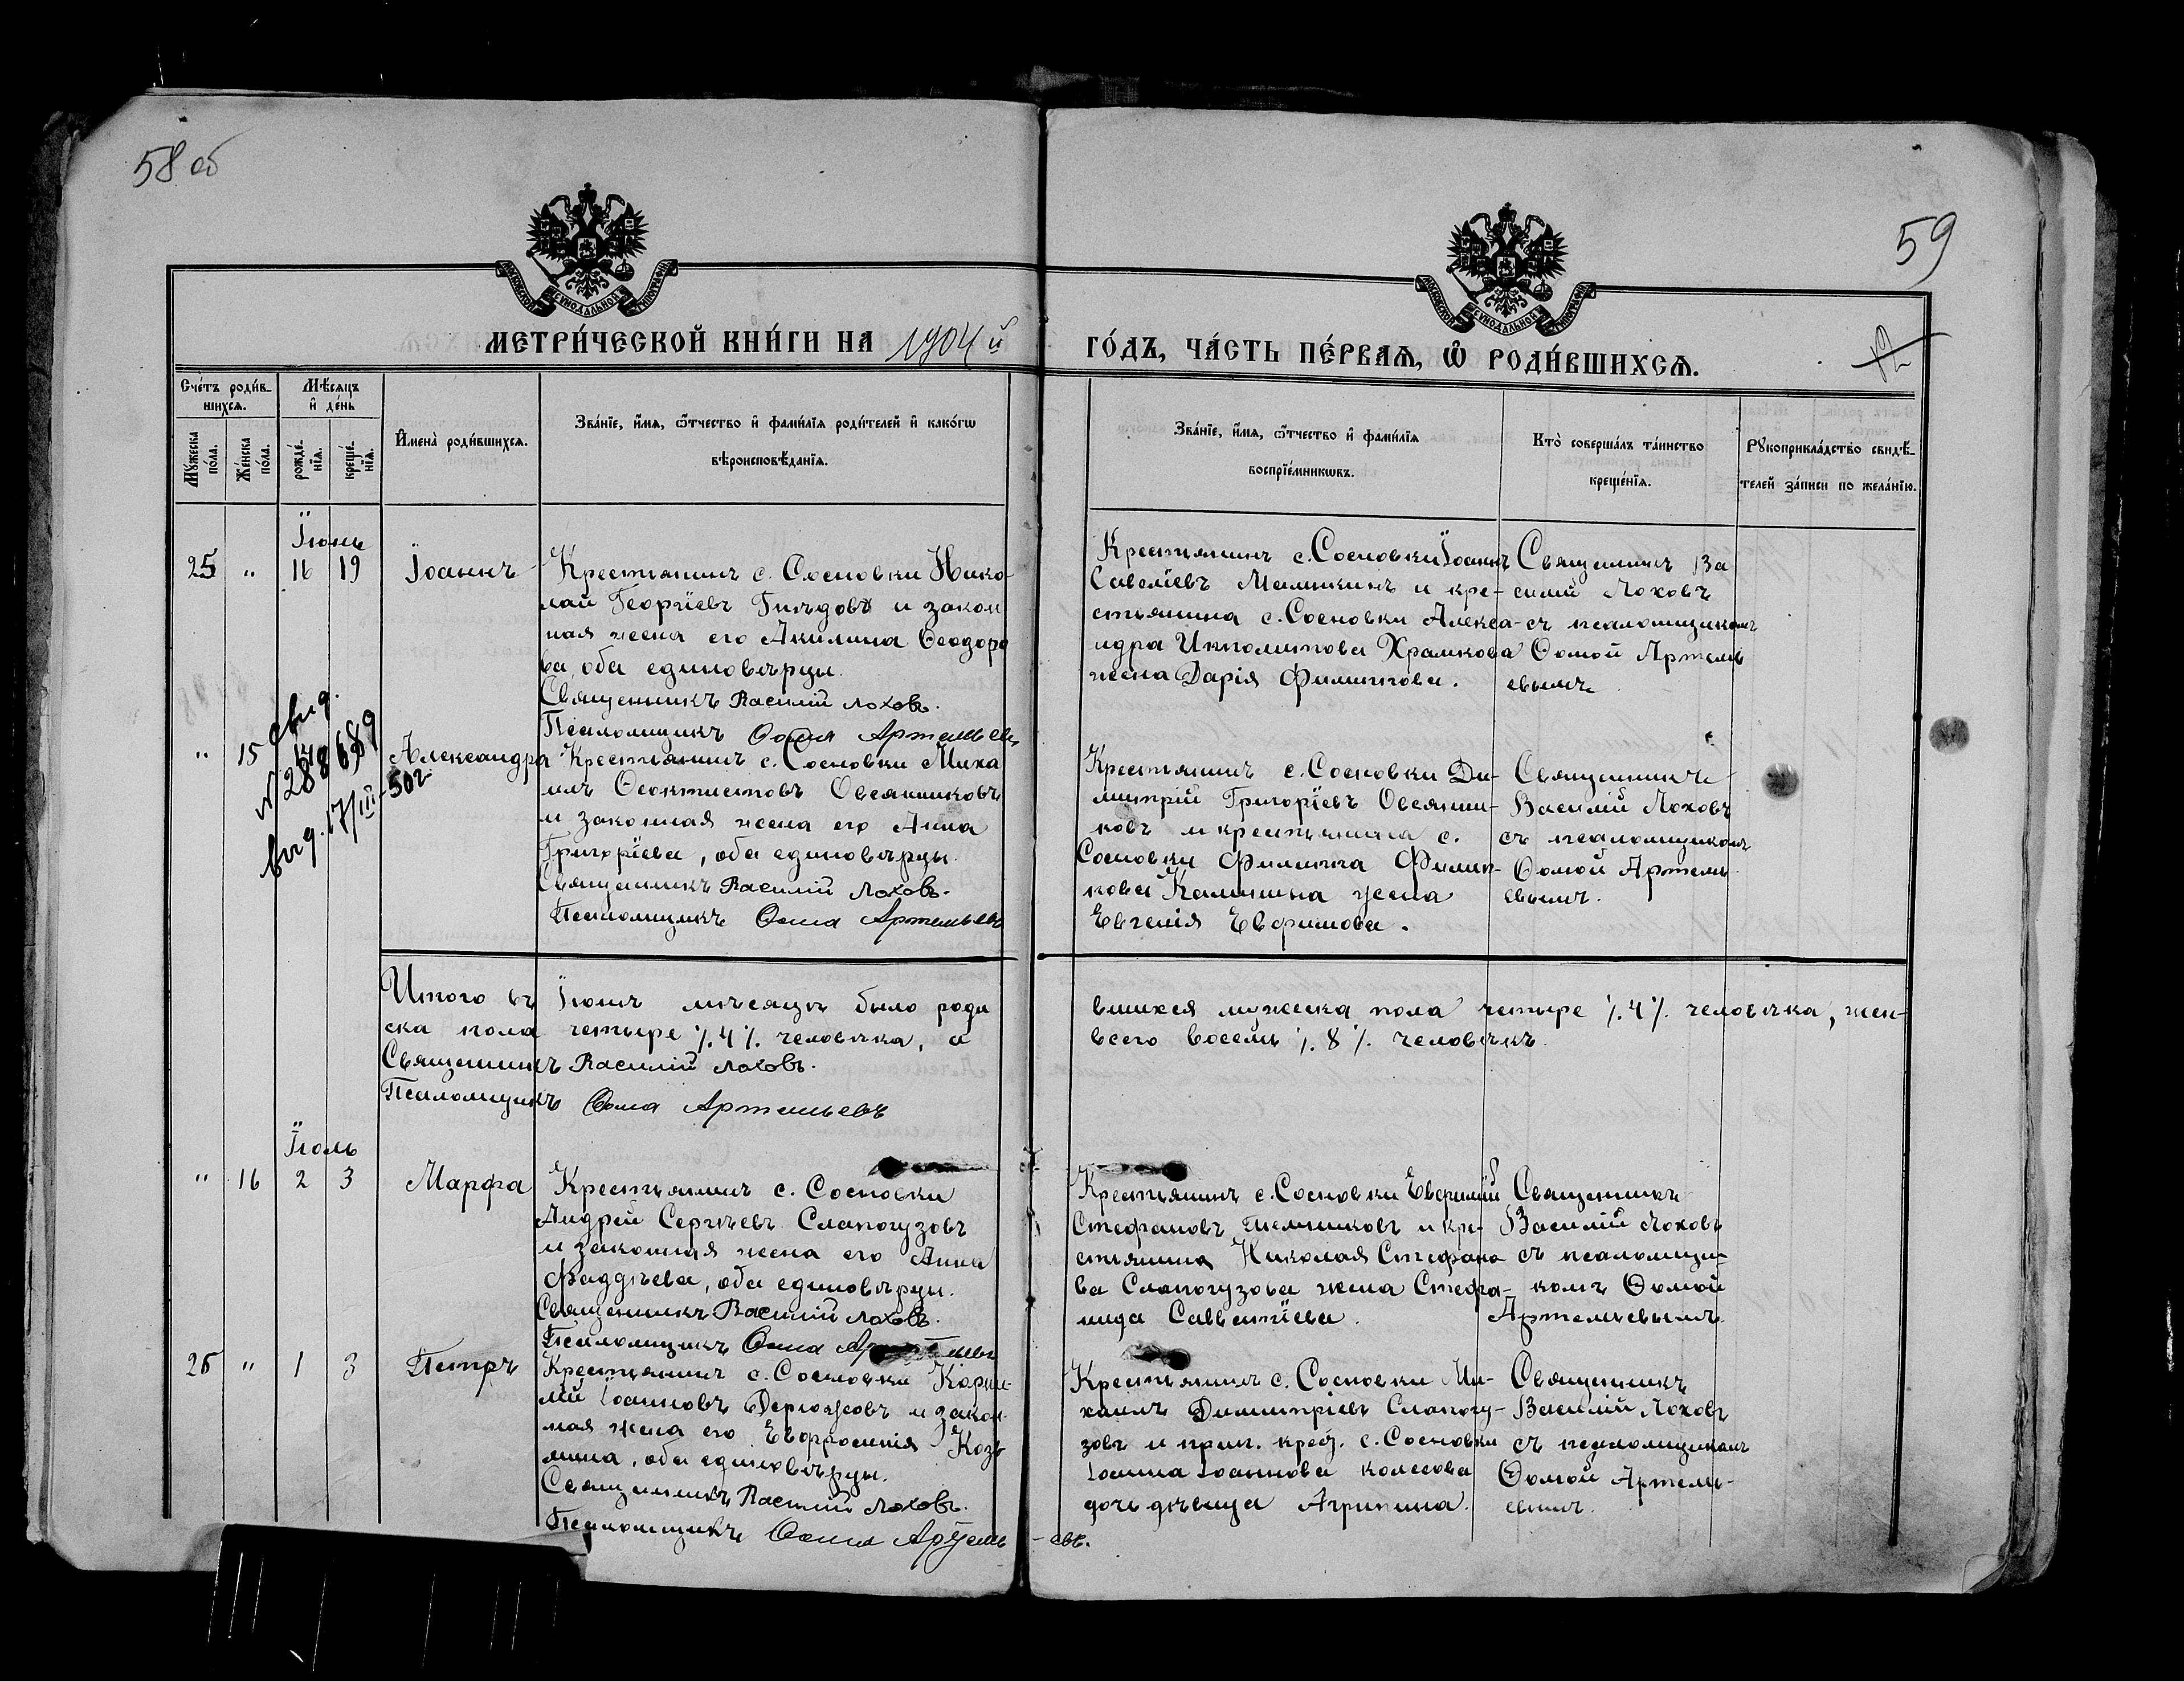 58 об
59
МЕТРИ́ЧЕСКОЙ КНИ́ГИ НА 1904 й ГО́ДЪ, ЧА́СТЬ ПЕ́РВАѦ, Ѿ РОДИ́ВШИХСѦ.
12
Сче́тъ роди́в-
шихсѧ.
Мѣ́сѧцъ
и҆ де́нь
Мꙋ́жеска
по́ла.
Же́нска
по́ла.
рожде́-
нїѧ.
креще́-
нїѧ.
И҆мена̀ роди́вшихсѧ.
Зва́нїе, и҆́мѧ, ѻ҆́тчество и҆ фами́лїѧ роди́телей и҆ како́гѡ
вѣроисповѣ́данїѧ.
Зва́нїе, и҆́мѧ, ѻ҆́тчество и҆ фами́лїѧ
воспрїе́мникѡвъ.
Кто̀ соверша́лъ та́инство
креще́нїѧ.
Рꙋкоприкла́дство свидѣ́-
телей за́писи по жела́нїю.
Іюнь
25 " 16 19 Іоаннъ
Крестьянинъ с. Сосновки Нико-
лай Георгіевъ Гнѣдовъ и закон
ная жена его Акилина Ѳеодоро
ва, оба единовѣрцы.
Священникъ Василій Лоховъ.
Псаломщикъ Ѳома Артемьевъ
Крестьянинъ с. Сосновки Іоаннъ
Савеліевъ Мамыкинъ и кре-
стьянина с. Сосновки Алекса-
ндра Ипполитова Храмкова
жена Дарія Филиппова.
Священникъ Ва
силій Лоховъ
съ псаломщикомъ
Ѳомой Артемь
евымъ
" 15 Александра
свид.
N 288689
выд. 17/III-502
Крестьянинъ с. Сосновки Миха
илъ Ѳеоктистовъ Овсянниковъ
и законная жена его Анна
Григоріева, оба единовѣрцы.
Священникъ Василій Лоховъ.
Псаломщикъ Ѳома Артемьевъ
Крестьянинъ с. Сосновки Ди-
митрій Григоріевъ Овсянни-
ковъ и крестьянина с.
Сосновки Филиппа Филип-
пова Калинина жена
Евгенія Евфимова.
Священникъ
Василій Лоховъ
съ псаломщикомъ
Ѳомой Артемь-
евымъ.
Итого въ Іюнѣ мѣсяцѣ было роди вшихся мужеска пола четыре ./.4./. человѣка, жен-
ска пола четыре ./.4./. человѣка, а всего восемь ./.8./. человѣкъ.
Священникъ Василій Лоховъ.
Псаломщикъ Ѳома Артемьевъ
Іюль
" 16 2 3 Марфа
Крестьянинъ с. Сосновки
Андрей Сергѣевъ Слапогузовъ
и законная жена его Анна
Фаддѣева, оба единовѣрцы.
Священникъ Василій Лоховъ.
Псаломщикъ Ѳома Артемьевъ
Крестьянинъ с. Сосновки Евфимій
Стефановъ и кре-
стьянина Николая Стефано
ва Слапогузова жена Стефа-
нида Савватіева.
Священникъ
Василій Лоховъ
съ псаломщи-
комъ Ѳомой
Артемьевымъ.
26 " 1 3 Петръ
Крестьянинъ с. Сосновки Корни-
лій Іоанновъ Дерюжовъ и закон-
ная жена его Евфросинія Козь
мина, оба единовѣрцы.
Священникъ Василій Лоховъ.
Псаломщикъ Ѳома Артемь-евъ.
Крестьянинъ с. Сосновки Ми-
хаилъ Димитріевъ Слапогу-
зовъ и крест. с. Сосновки
Іоанна Іоаннова Колесова
дочь дѣвица Агрипина.
Священникъ
Василій Лоховъ
съ псаломщикомъ
Ѳомой Артемь-
евымъ.